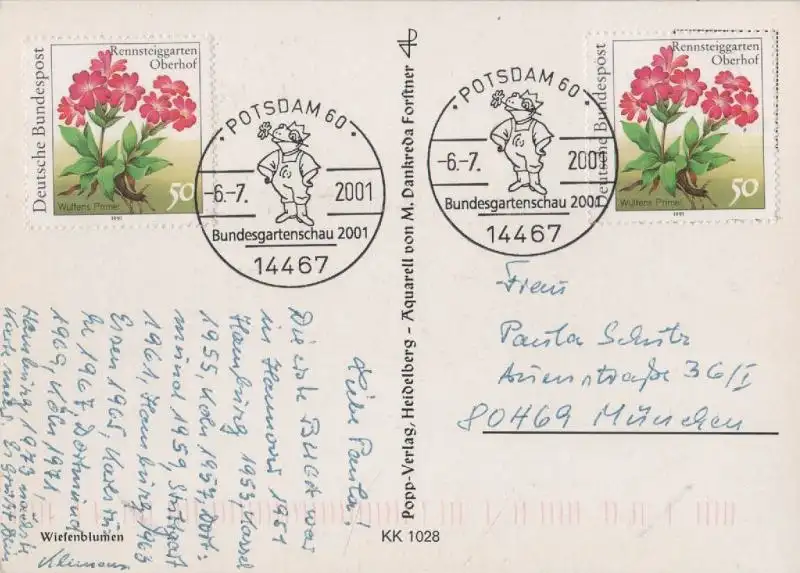 Deutsche Bundespost
Rennsteiggarten
Oberhof
Wulfens Primel
50
1991
POTSDAM 60
-6.-7. 2001
Bundesgartenschau 2001
14467
Deutsche Bundespost
Rennsteiggarten
Oberhof
Wulfens Primel
50
1991
POTSDAM 60
-6.-7. 2001
Bundesgartenschau 2001
14467
Liebe Paula!
Die erste BUGA war
in Hannover 1951
Hamburg 1953, Kassel
1955, Köln 1957, Dort-
mund 1959, Stuttgart
1961, Hamburg 1963
Essen 1965, Karlsru-
he 1967, Dortmund
1969, Köln 1971,
Hamburg 1973 nächste
Karte mehr. Es grüßt Dein
Klemens
Popp-Verlag, Heidelberg - Aquarell von M. Dankreda Forstner
Frau
Paula Schütz
Auenstraße 36/I
80469 München
Wiefenblumen
KK 1028